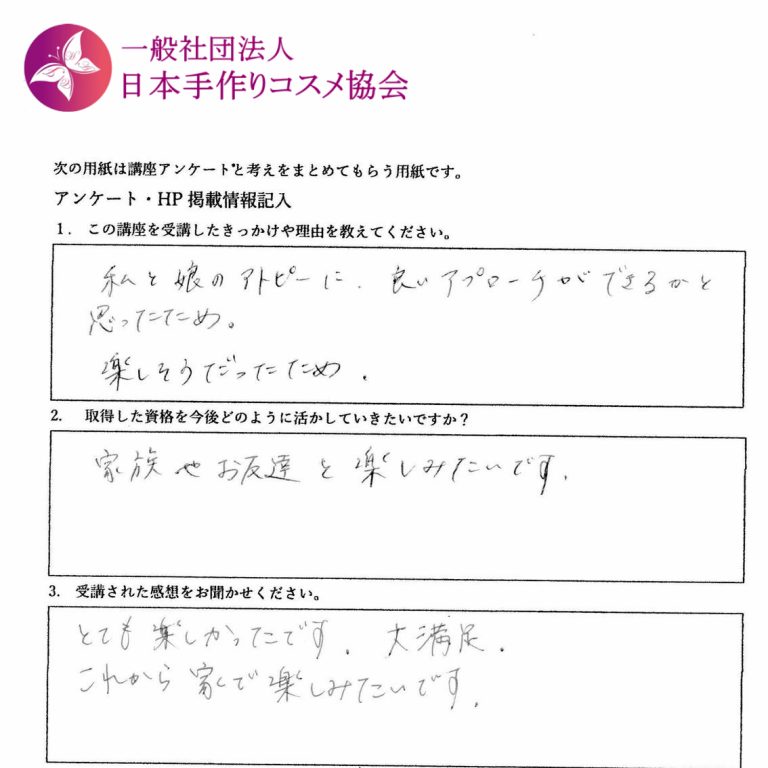 一般社団法人
日本手作りコスメ協会
次の用紙は講座アンケートと考えをまとめてもらう用紙です。
アンケート・HP 掲載情報記入
1. この講座を受講したきっかけや理由を教えてください。
私と娘のアトピーに、良いアプローチができるかと
思ったため。
楽しそうだったため.
2. 取得した資格を今後どのように活かしていきたいですか？
家族やお友達と楽しみたいです.
3. 受講された感想をお聞かせください。
とても楽しかったです. 大満足.
これから家で楽しみたいです.